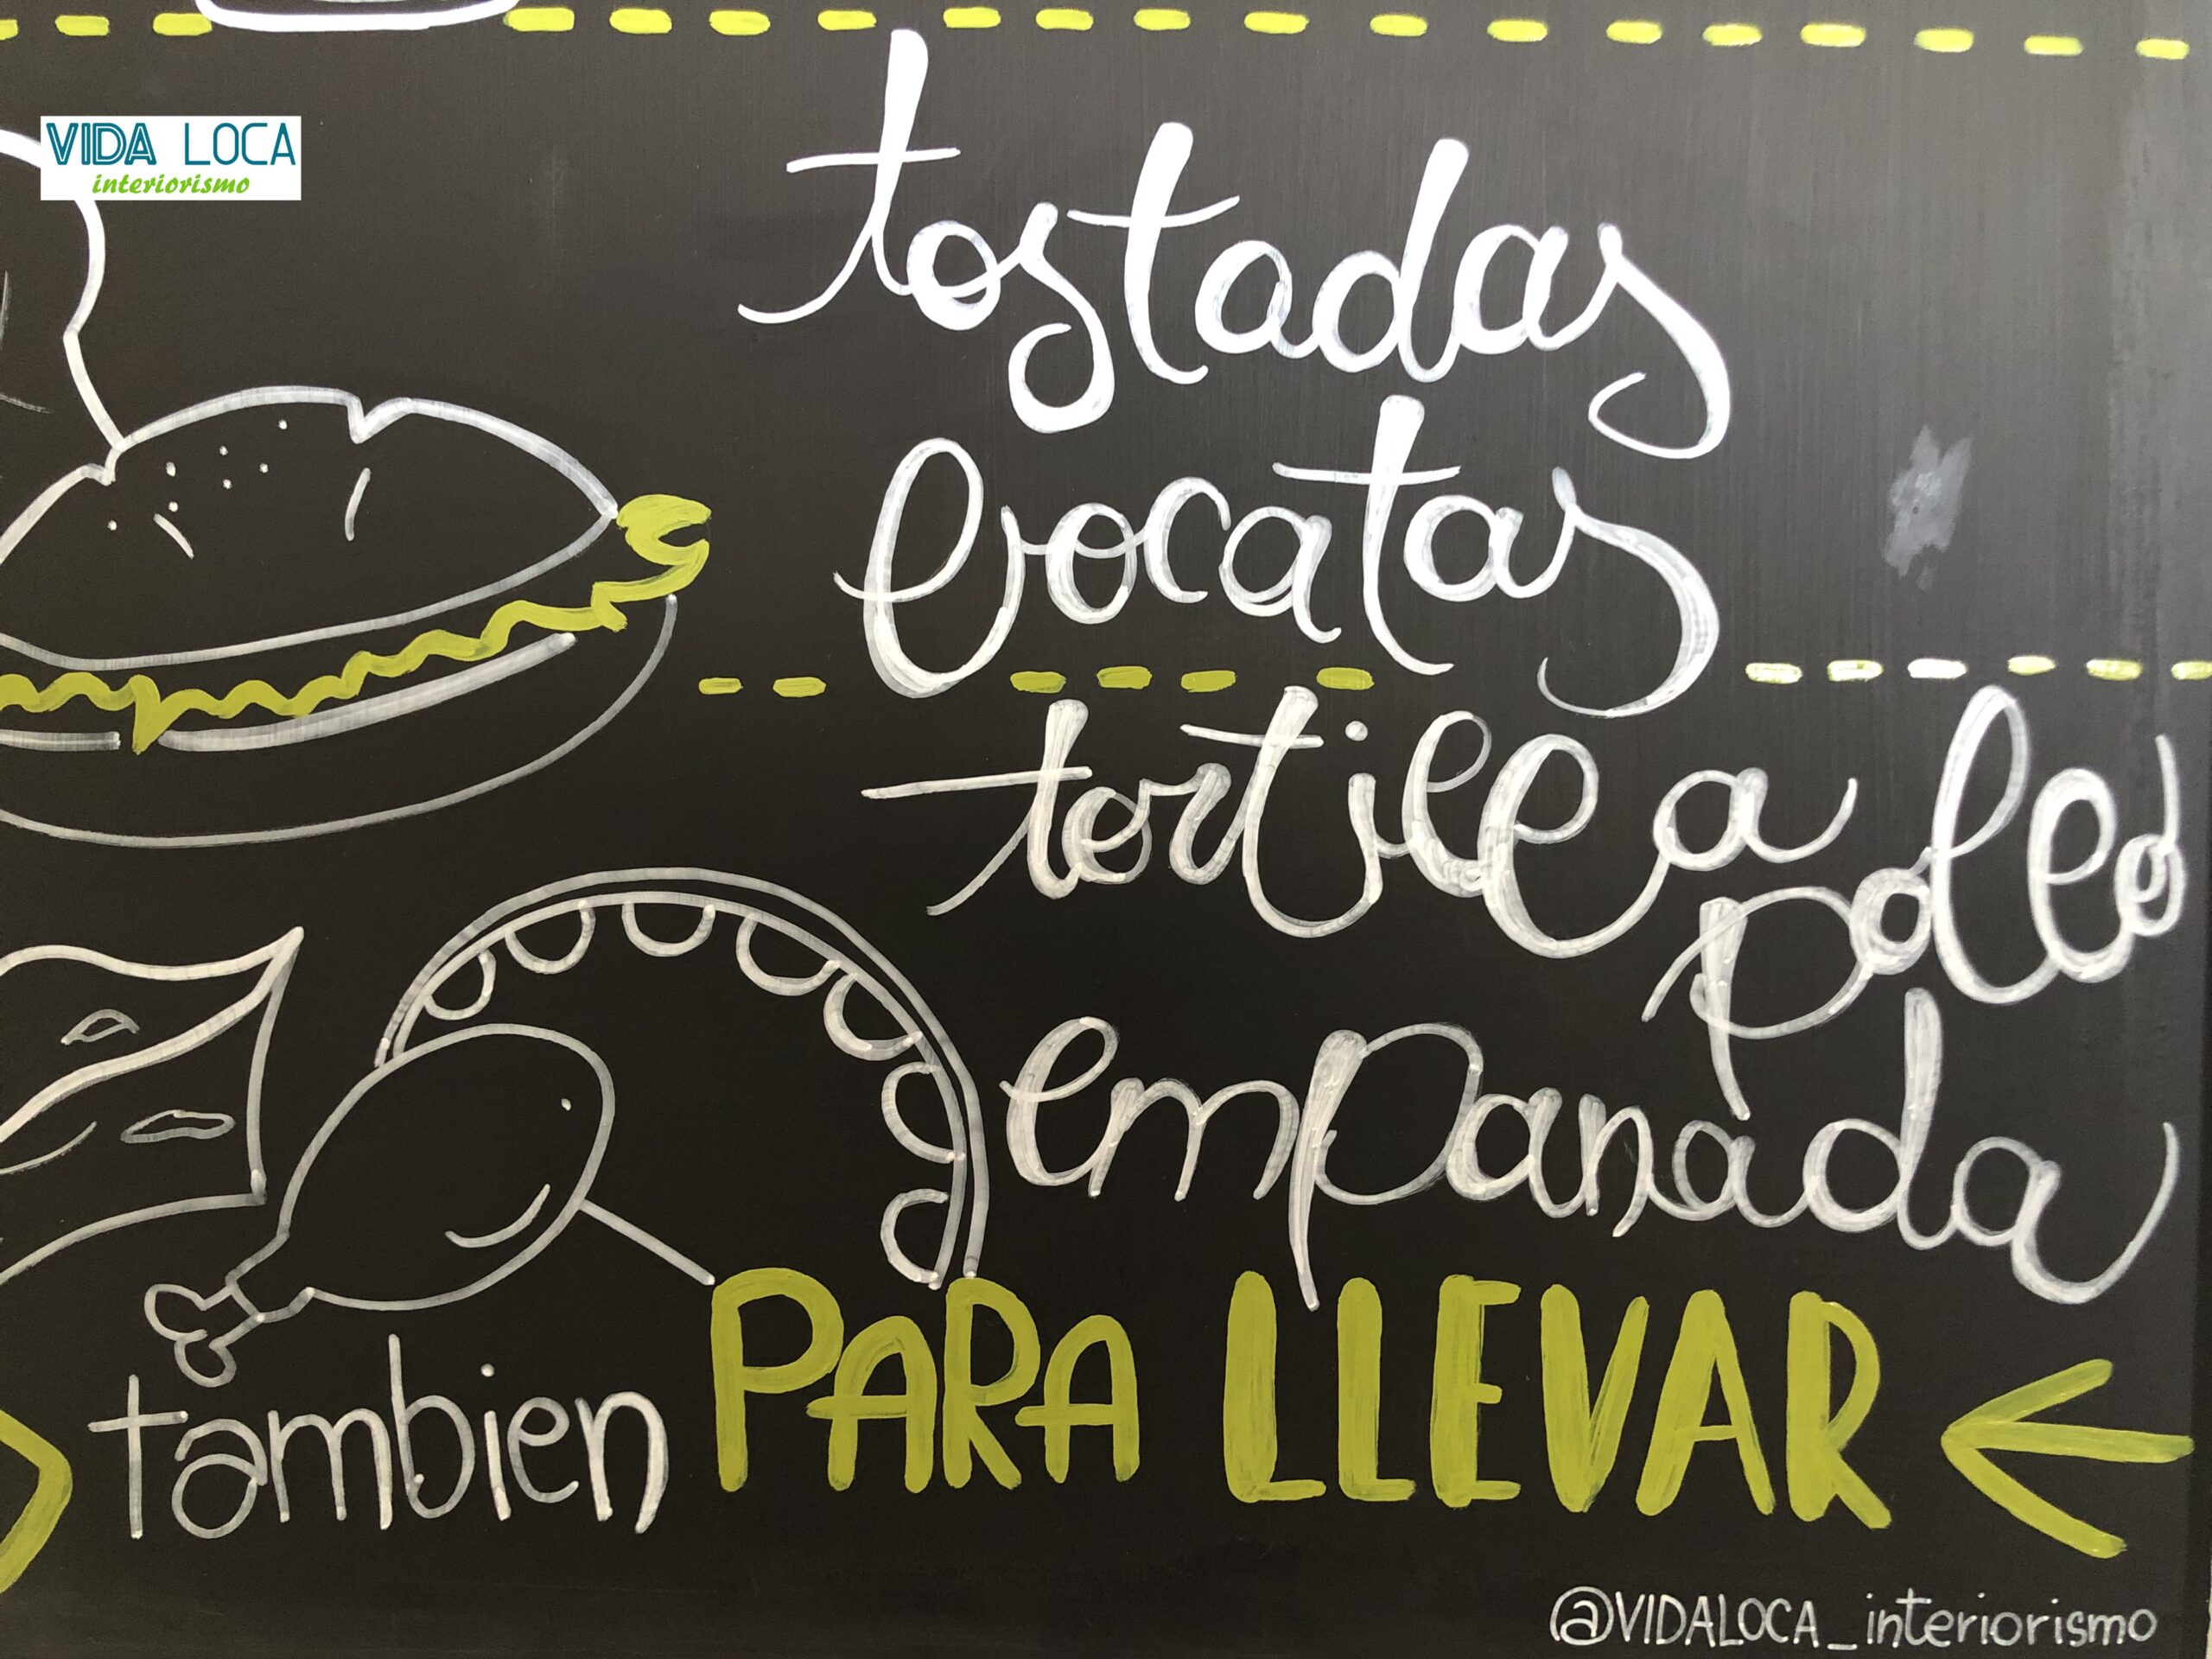 VIDA LOCA
interiorismo
tostadas
bocatas
tortilla
pollo
empanada
tambien PARA LLEVAR
@VIDALOCA_interiorismo